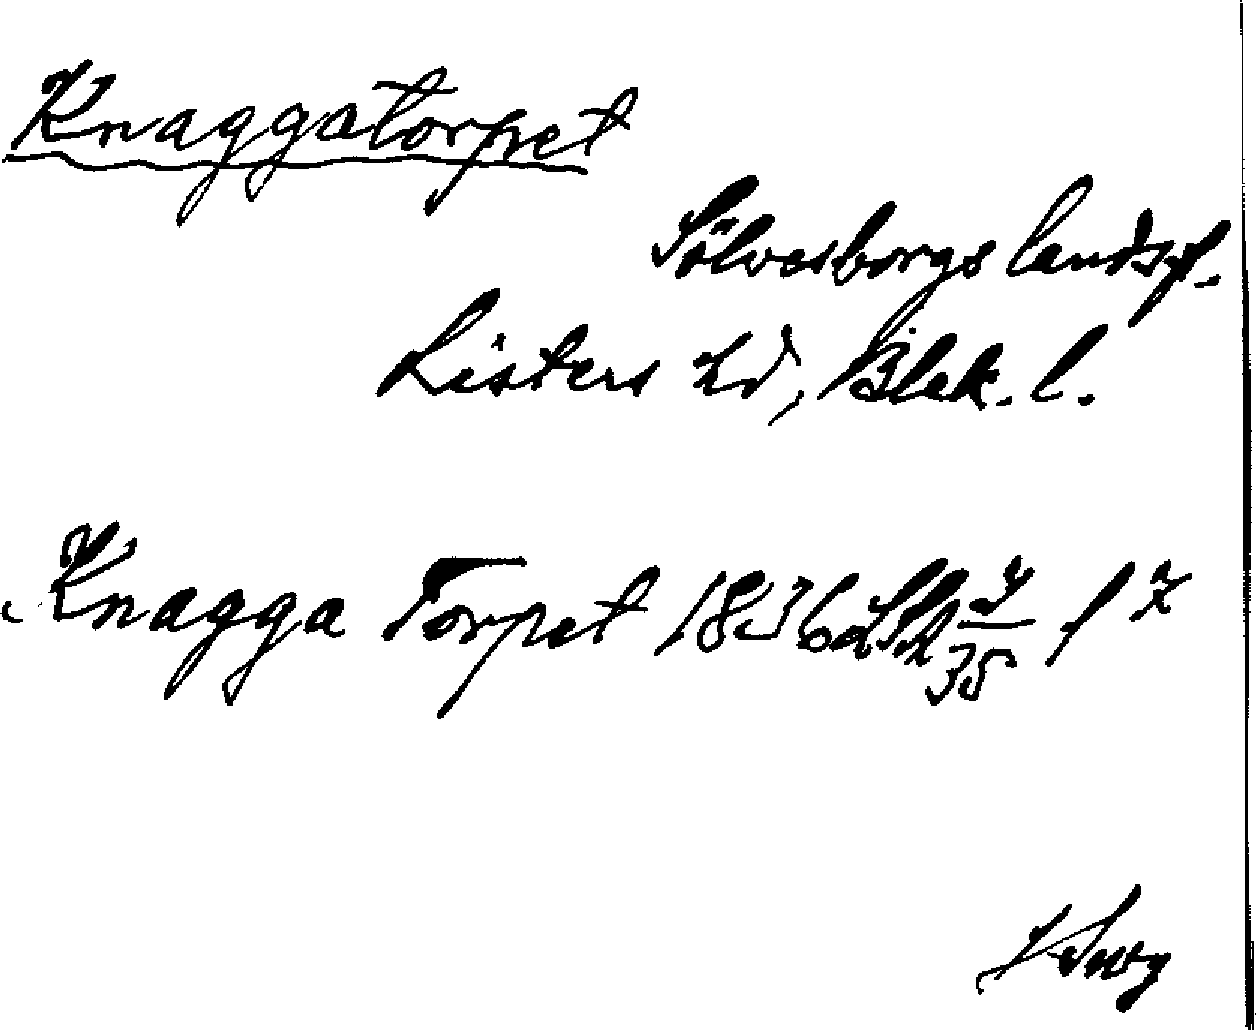 Knaggatorpet
Sölvesborgs landsf.
Listers hd, Blek. l.
Knagga Torpet 1836 LSA 35 f